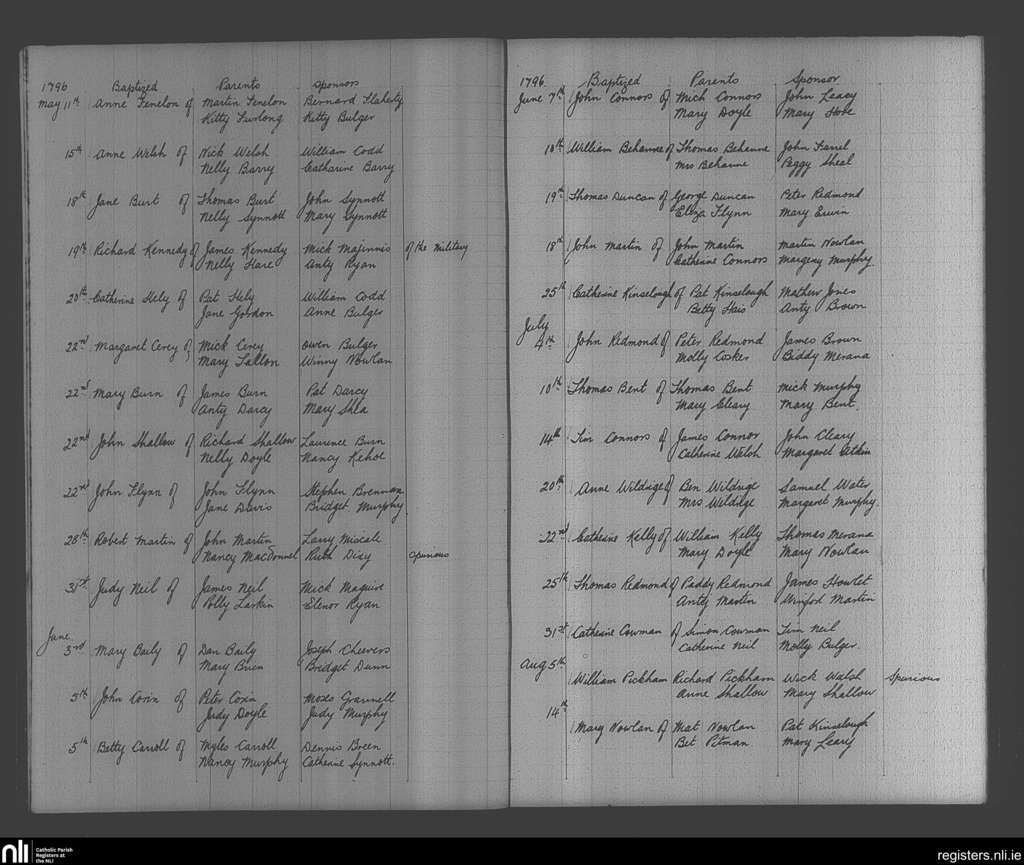 1796 Baptized Parents Sponsors
May 11th Anne Fenelon of Martin Fenelon Bernard Flaherty
Kitty Furlong Kitty Bulger
15th Anne Welsh of Nick Welsh William Codd
Nelly Barry Catharine Barry
18th Jane Burt of Thomas Burt John Synnott
Nelly Synnott Mary Synnott
19th Richard Kennedy of James Kennedy Mick Maginnis of the Military
Nelly Hare Anty Ryan
20th Catherine Hely of Pat Hely William Codd
Jane Gordon Anne Bulger
22nd Margaret Cerey of Mick Cerey Owen Bulger
Mary Winny Nowlan
22nd Mary Burn of James Burn Pat Darcy
Anty Darcy Mary Shea
22nd John Shallow of Richard Shallow Laurence Burn
Nelly Doyle Nancy Kehoe
22nd John Flynn of John Flynn Stephen Brennan
Jane Davis Bridget Murphy
28th Robert Martin of John Martin Larry Miscale
Nancy MacDonnel Ruth Disy Spurious
31st Judy Neil of James Neil Mick Maguire
Polly Larkin Elenor Ryan
June
3rd Mary Baily of Dan Baily Joseph Cheevers
Mary Brien Bridget Dunn
5th John Corin of Peter Corin Grannell
Judy Doyle Judy Murphy
5th Betty Carroll of Myles Carroll Dennis Breen
Nancy Murphy Catherine Synnott.
1796 Baptized Parents Sponsor
June 7th John Connors of Mich Connors John Leacy
Mary Doyle Mary Hore
10th William Behanne of Thomas Behanne John Farrel
Mrs Behanne Peggy Sheal
19th Thomas Duncan of George Duncan Peter Redmond
Eliza Flynn Mary Erwin
18th John Martin of John Martin Martin Nowlan
Catherine Connors Margery Murphy.
25th Catherine Kinselough of Pat Kinselaugh Mathew Jones
Betty Hais Anty Brown
July
4th John Redmond of Peter Redmond James Brown
Molly Cosker Biddy Merana
10th Thomas Bent of Thomas Bent Mick Murphy
Mary Cleary Mary Bent.
14th Tim Connors of James Connor John Cleary
Catherine Walsh Margaret Atkin
20th Anne Wildrige of Ben Wildrige Samuel Water
Mrs Wildrige Margaret Murphy.
22nd Catherine Kelly of William Kelly Thomas Merana
Mary Doyle Mary Nowlan
25th Thomas Redmond of Paddy Redmond James Howlet
Anty Martin Winford Martin
31st Catherine Cowman of Simon Cowman Tim Neil
Catherine Neil Molly Bulger.
Aug 5th
William Pickham Richard Pickham Wick Walsh Spurious
Anne Shallow Mary Shallow
14th
Mary Nowlan of Mat Nowlan Pat Kinselough
Bet Pitman Mary Leary
nli Catholic Parish
Registers at
the NLI
registers.nli.ie